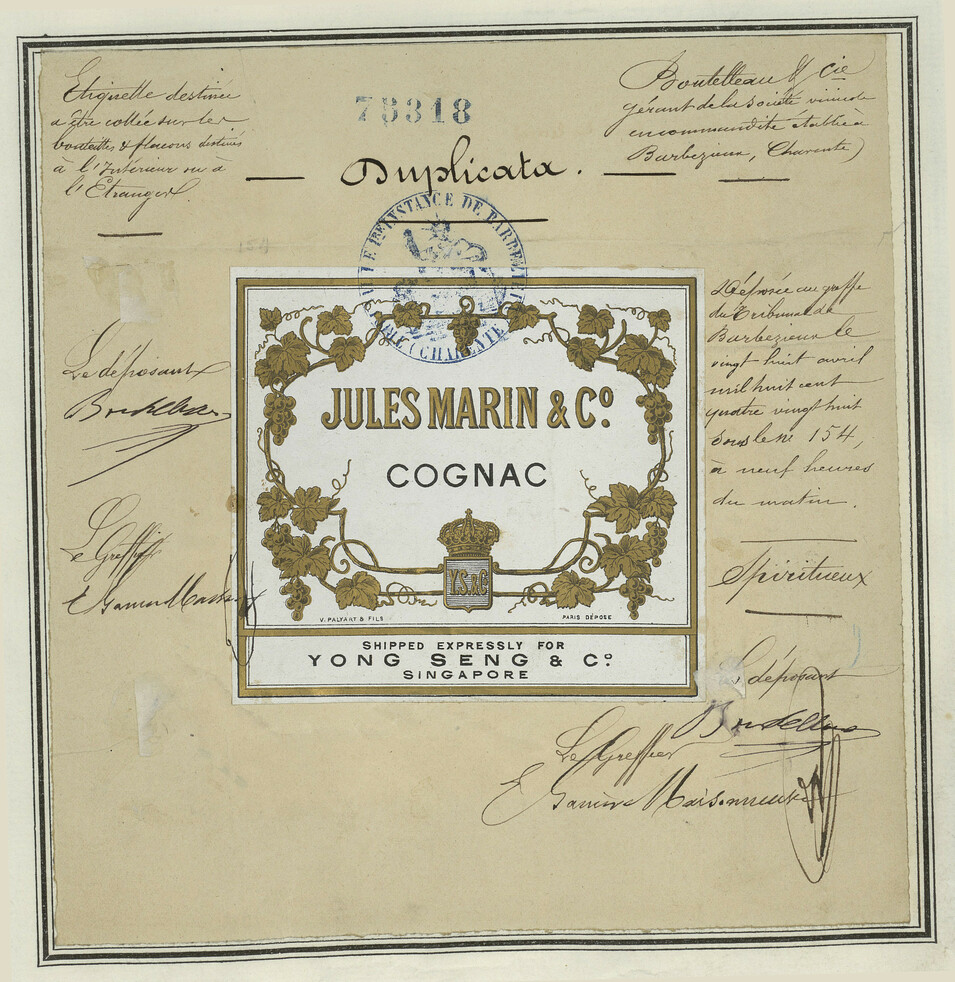 Etiquette destinée
a être collée sur les
bouteilles & flacons destinés
à l'Intérieur ou à
l'Etranger.
78318
Duplicata.
Boutelleau & Cie
gérant de la Société vinicole
en commandite établie à
Barbezieux, Charente)
INSTANCE DE BARBEZIEUX
(CHARENTE)
154
Le déposant
Boutelleau
Le Greffier
JULES MARIN & Co.
COGNAC
Y.S&C
V. PALYART & FILS
PARIS DÉPOSÉ
SHIPPED EXPRESSLY FOR
YONG SENG & Co.
SINGAPORE
Déposée au greffe
du Tribunal de
Barbezieux le
vingt huit avril
mil huit cent
quatre vingt huit
sous le no 154,
à neuf heures
du matin.
Spiritueux
Le déposant
Boutelleau
Le Greffier